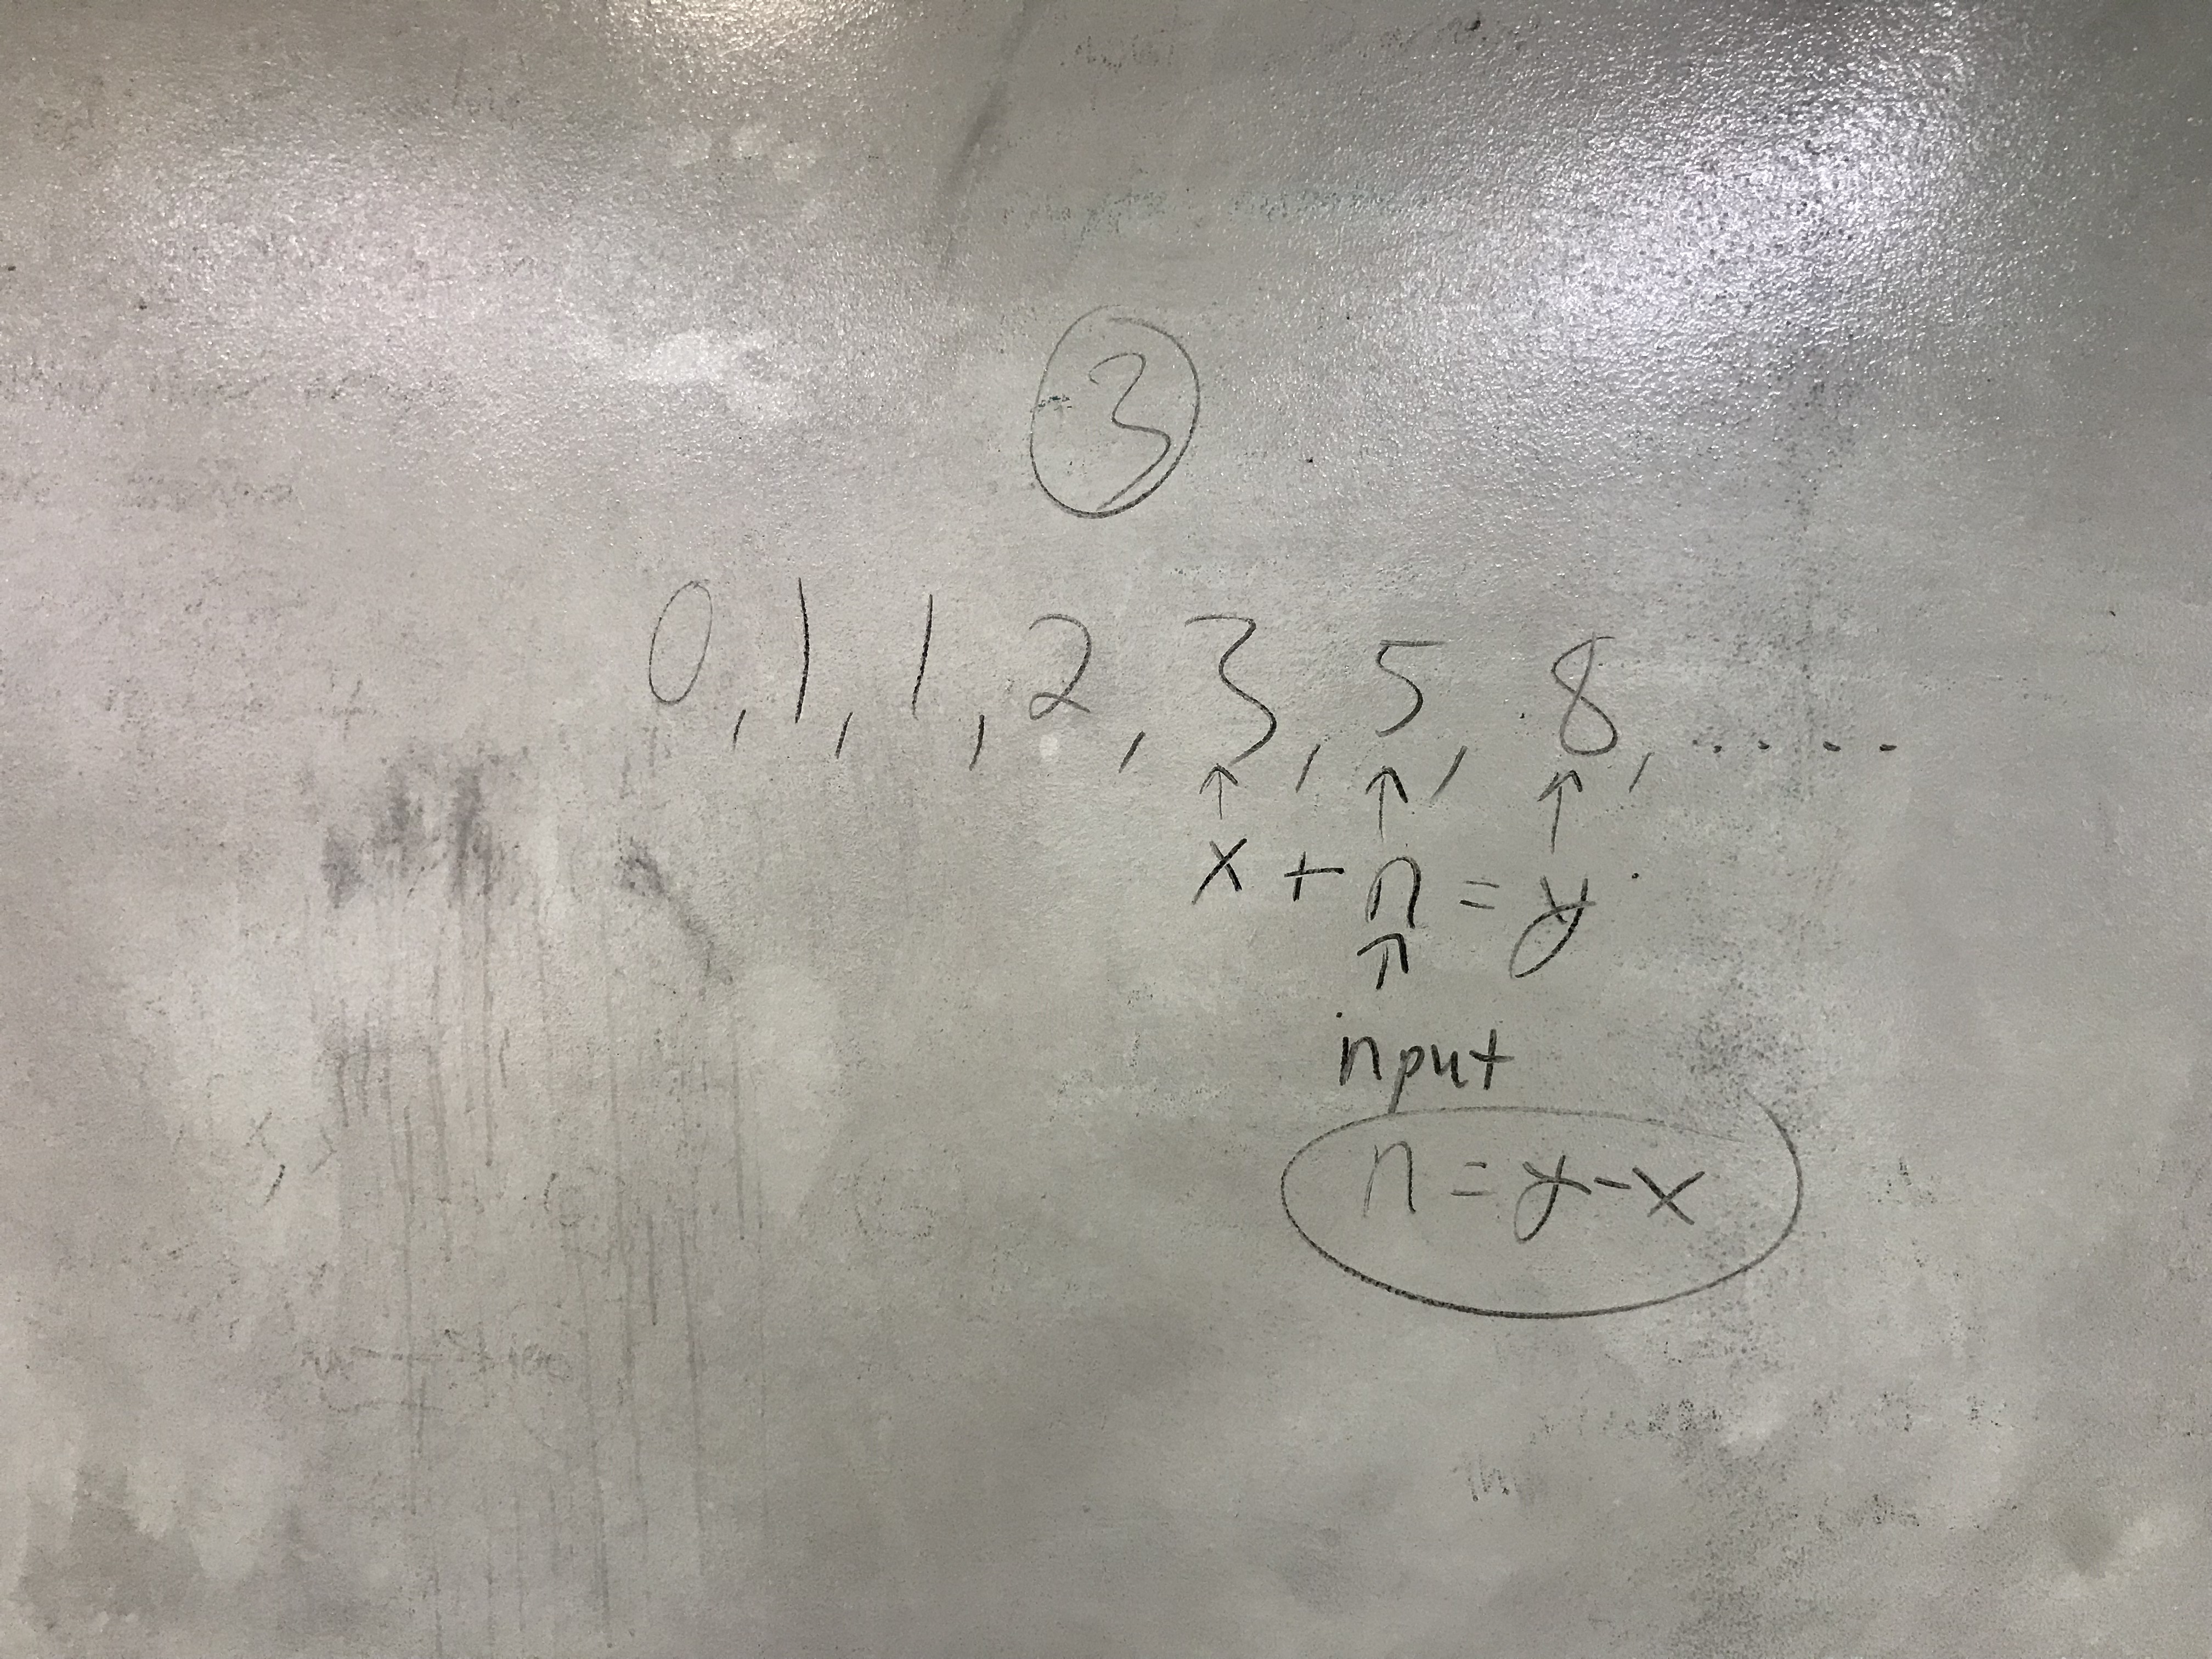 3
0, 1, 1, 2, 3, 5, 8, .....
↑ ↑ ↑
x + n = y
↑
input
n = y - x